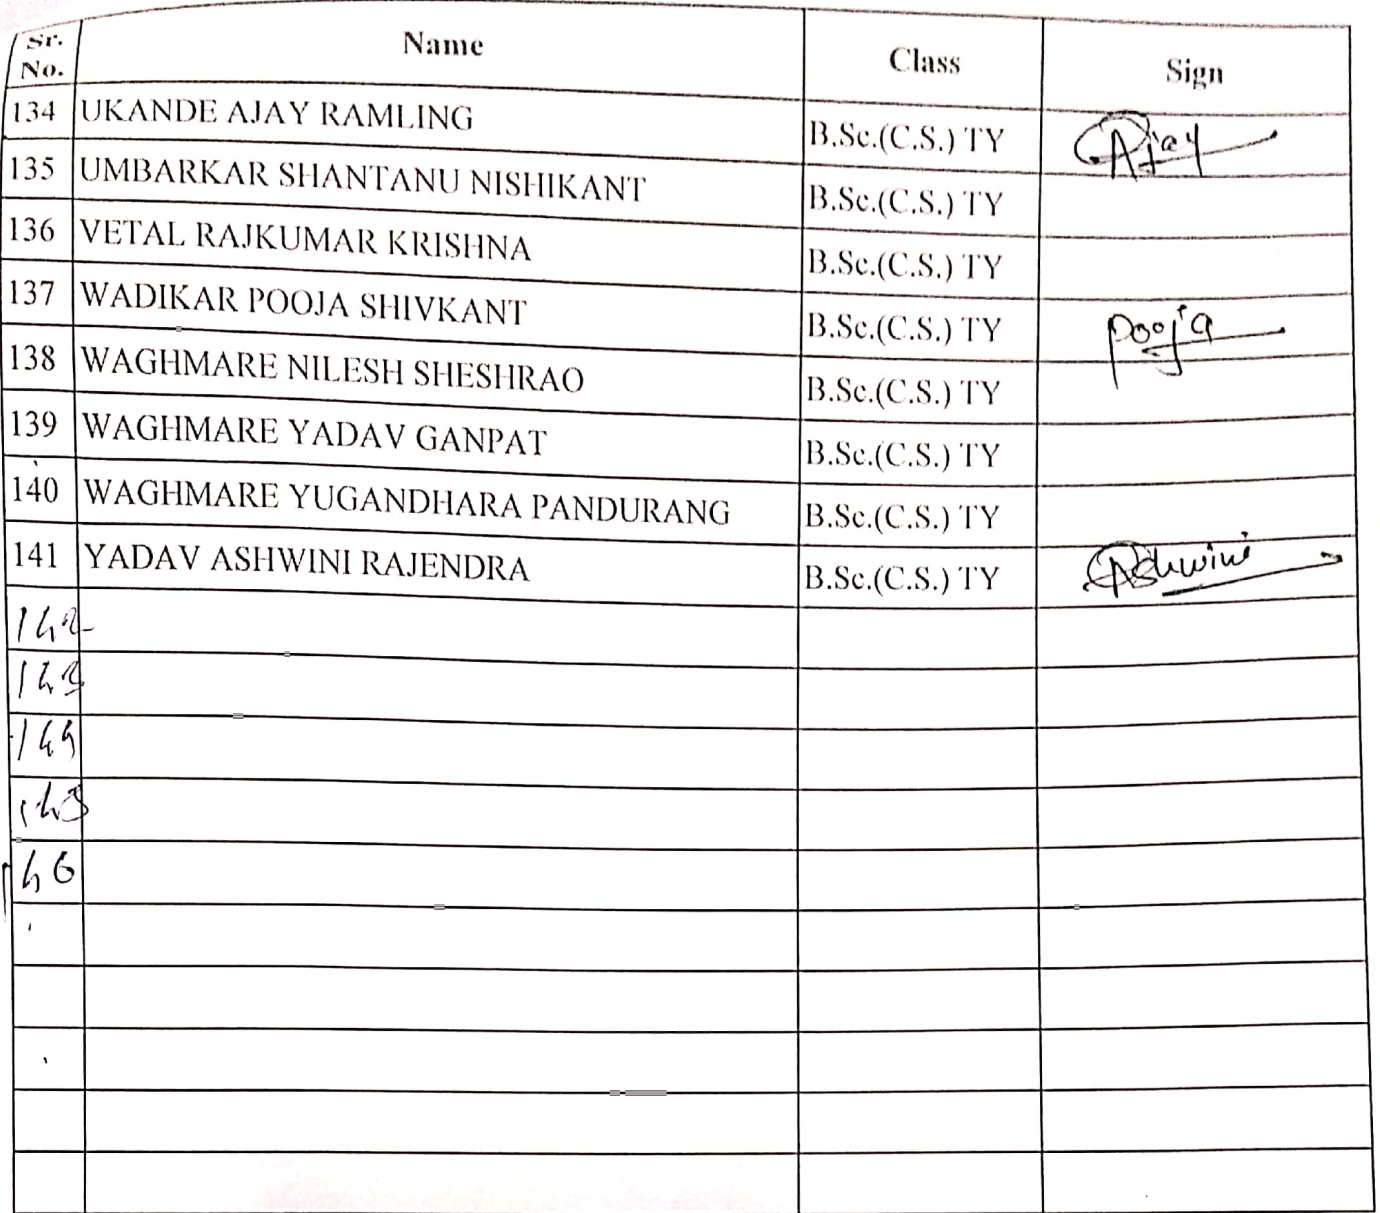 Sr. No. Name Class Sign
134 UKANDE AJAY RAMLING B.Sc.(C.S.) TY Ajay
135 UMBARKAR SHANTANU NISHIKANT B.Sc.(C.S.) TY
136 VETAL RAJKUMAR KRISHNA B.Sc.(C.S.) TY
137 WADIKAR POOJA SHIVKANT B.Sc.(C.S.) TY Pooja
138 WAGHMARE NILESH SHESHRAO B.Sc.(C.S.) TY
139 WAGHMARE YADAV GANPAT B.Sc.(C.S.) TY
140 WAGHMARE YUGANDHARA PANDURANG B.Sc.(C.S.) TY
141 YADAV ASHWINI RAJENDRA B.Sc.(C.S.) TY Ashwini
142
143
144
145
146